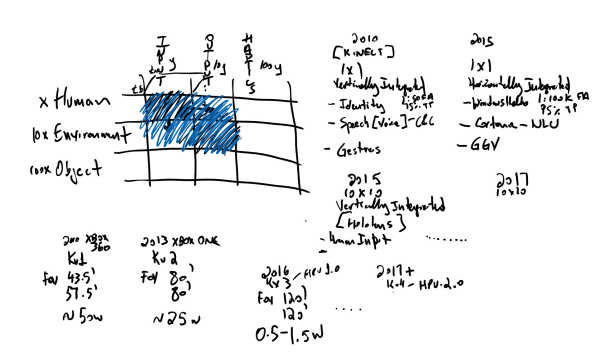 INPUT
OUTPUT
HAPTICS
10y
100y
x Human
10x Environment
100x Object
2010
[KINECT]
1x1
Vertically Integrated
- Identity
- Speech [Voice] - C&C
- Gestures
2015
1x1
Horizontally Integrated
- Windows Hello 1:100K FA
95% TP
- Cortana - NLU
- GGV
2015
10x10
Vertically Integrated
[Hololens]
- Human Input
........
2017
10x10
XBOX
360
Kv1
FoV 43.5'
57.5'
~50w
2013 XBOX ONE
Kv2
FoV 80'
80'
~25w
2016
Kv3 / HPU 1.0
FoV 120'
120'
0.5-1.5W
....
2017+
K.4 - HPU.2.0